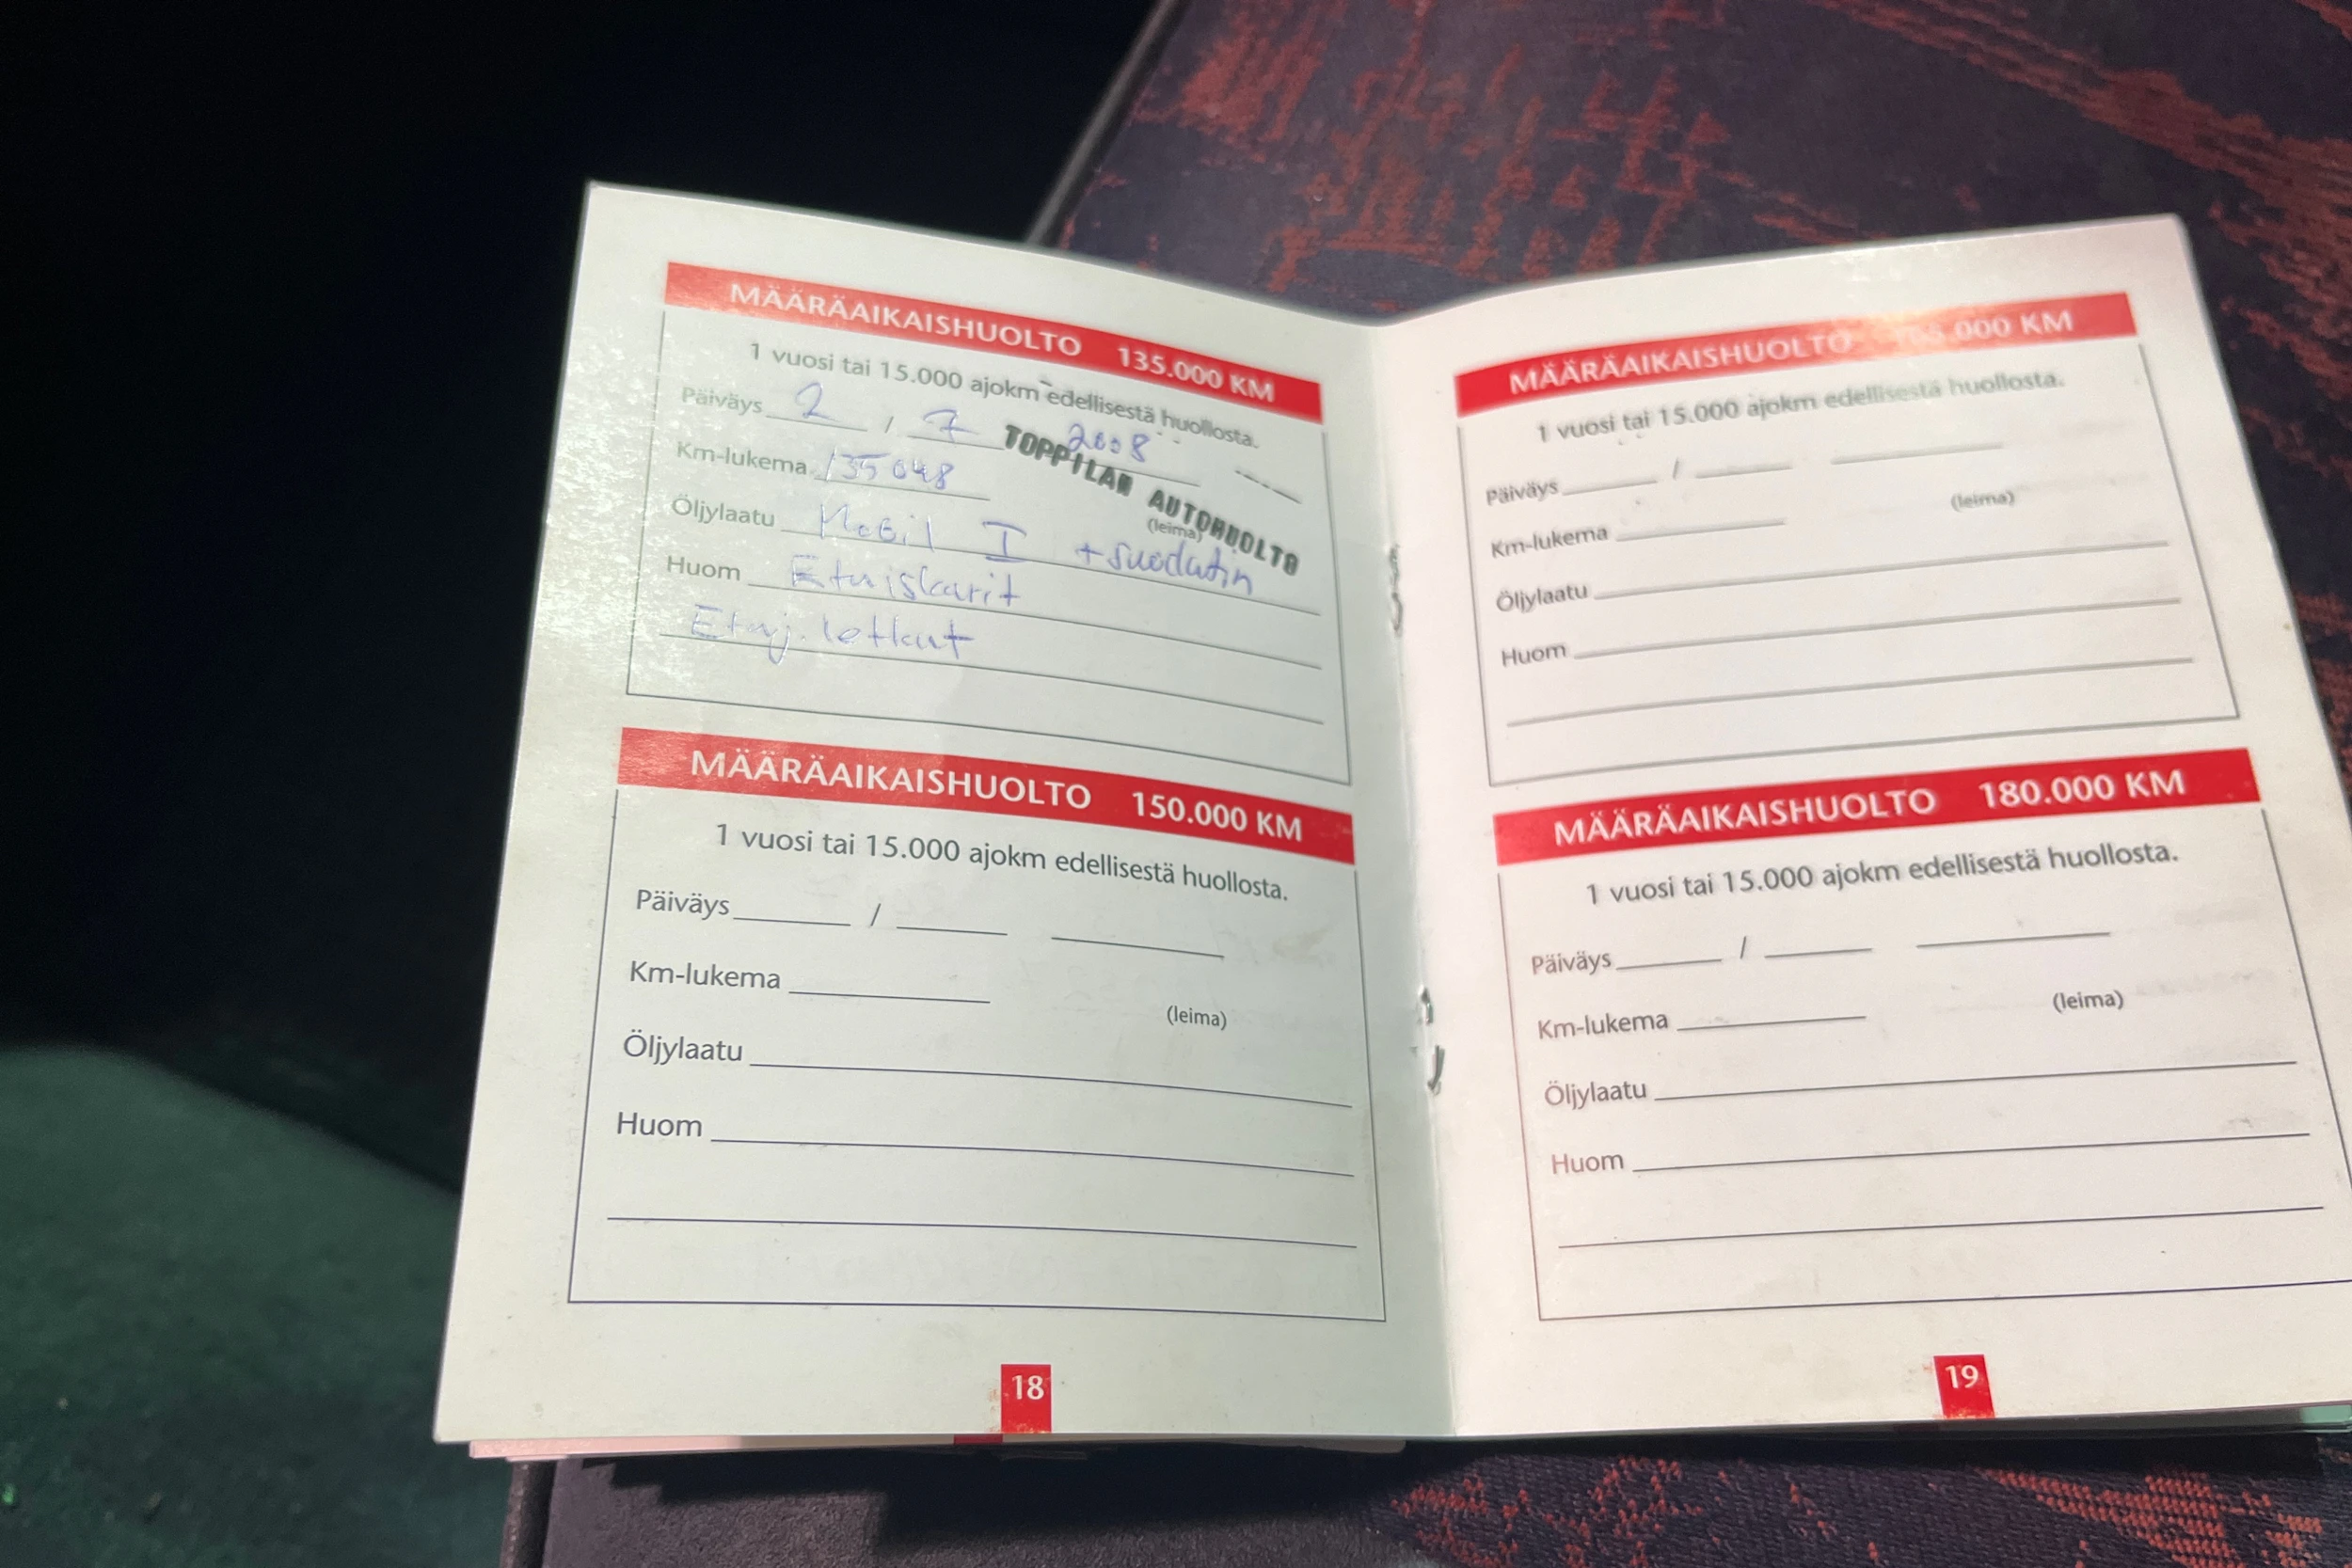 MÄÄRÄAIKAISHUOLTO 135.000 KM
1 vuosi tai 15.000 ajokm edellisestä huollosta.
Päiväys 2 / 7 2008
TOPPILAN AUTOHUOLTO
Km-lukema 135048
(leima)
Öljylaatu Mobil I + suodatin
Huom Etuiskarit
Etuj. letkut
MÄÄRÄAIKAISHUOLTO 150.000 KM
1 vuosi tai 15.000 ajokm edellisestä huollosta.
Päiväys /
Km-lukema
(leima)
Öljylaatu
Huom
18
MÄÄRÄAIKAISHUOLTO 165.000 KM
1 vuosi tai 15.000 ajokm edellisestä huollosta.
Päiväys /
(leima)
Km-lukema
Öljylaatu
Huom
MÄÄRÄAIKAISHUOLTO 180.000 KM
1 vuosi tai 15.000 ajokm edellisestä huollosta.
Päiväys /
(leima)
Km-lukema
Öljylaatu
Huom
19